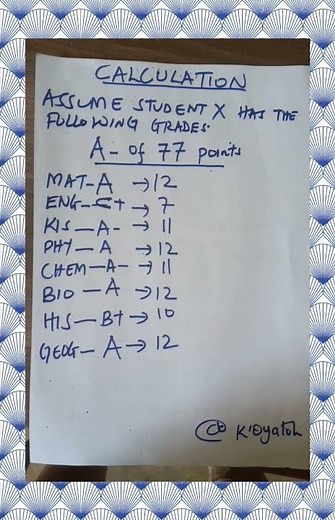 CALCULATION
ASSUME STUDENT X HAS THE
FOLLOWING GRADES.
A- of 77 points
MAT-A →12
ENG-C+ →7
KIS-A- →11
PHY-A →12
CHEM-A- →11
BIO-A →12
HIS-B+ →10
GEOG-A→12
K'Oyatoh